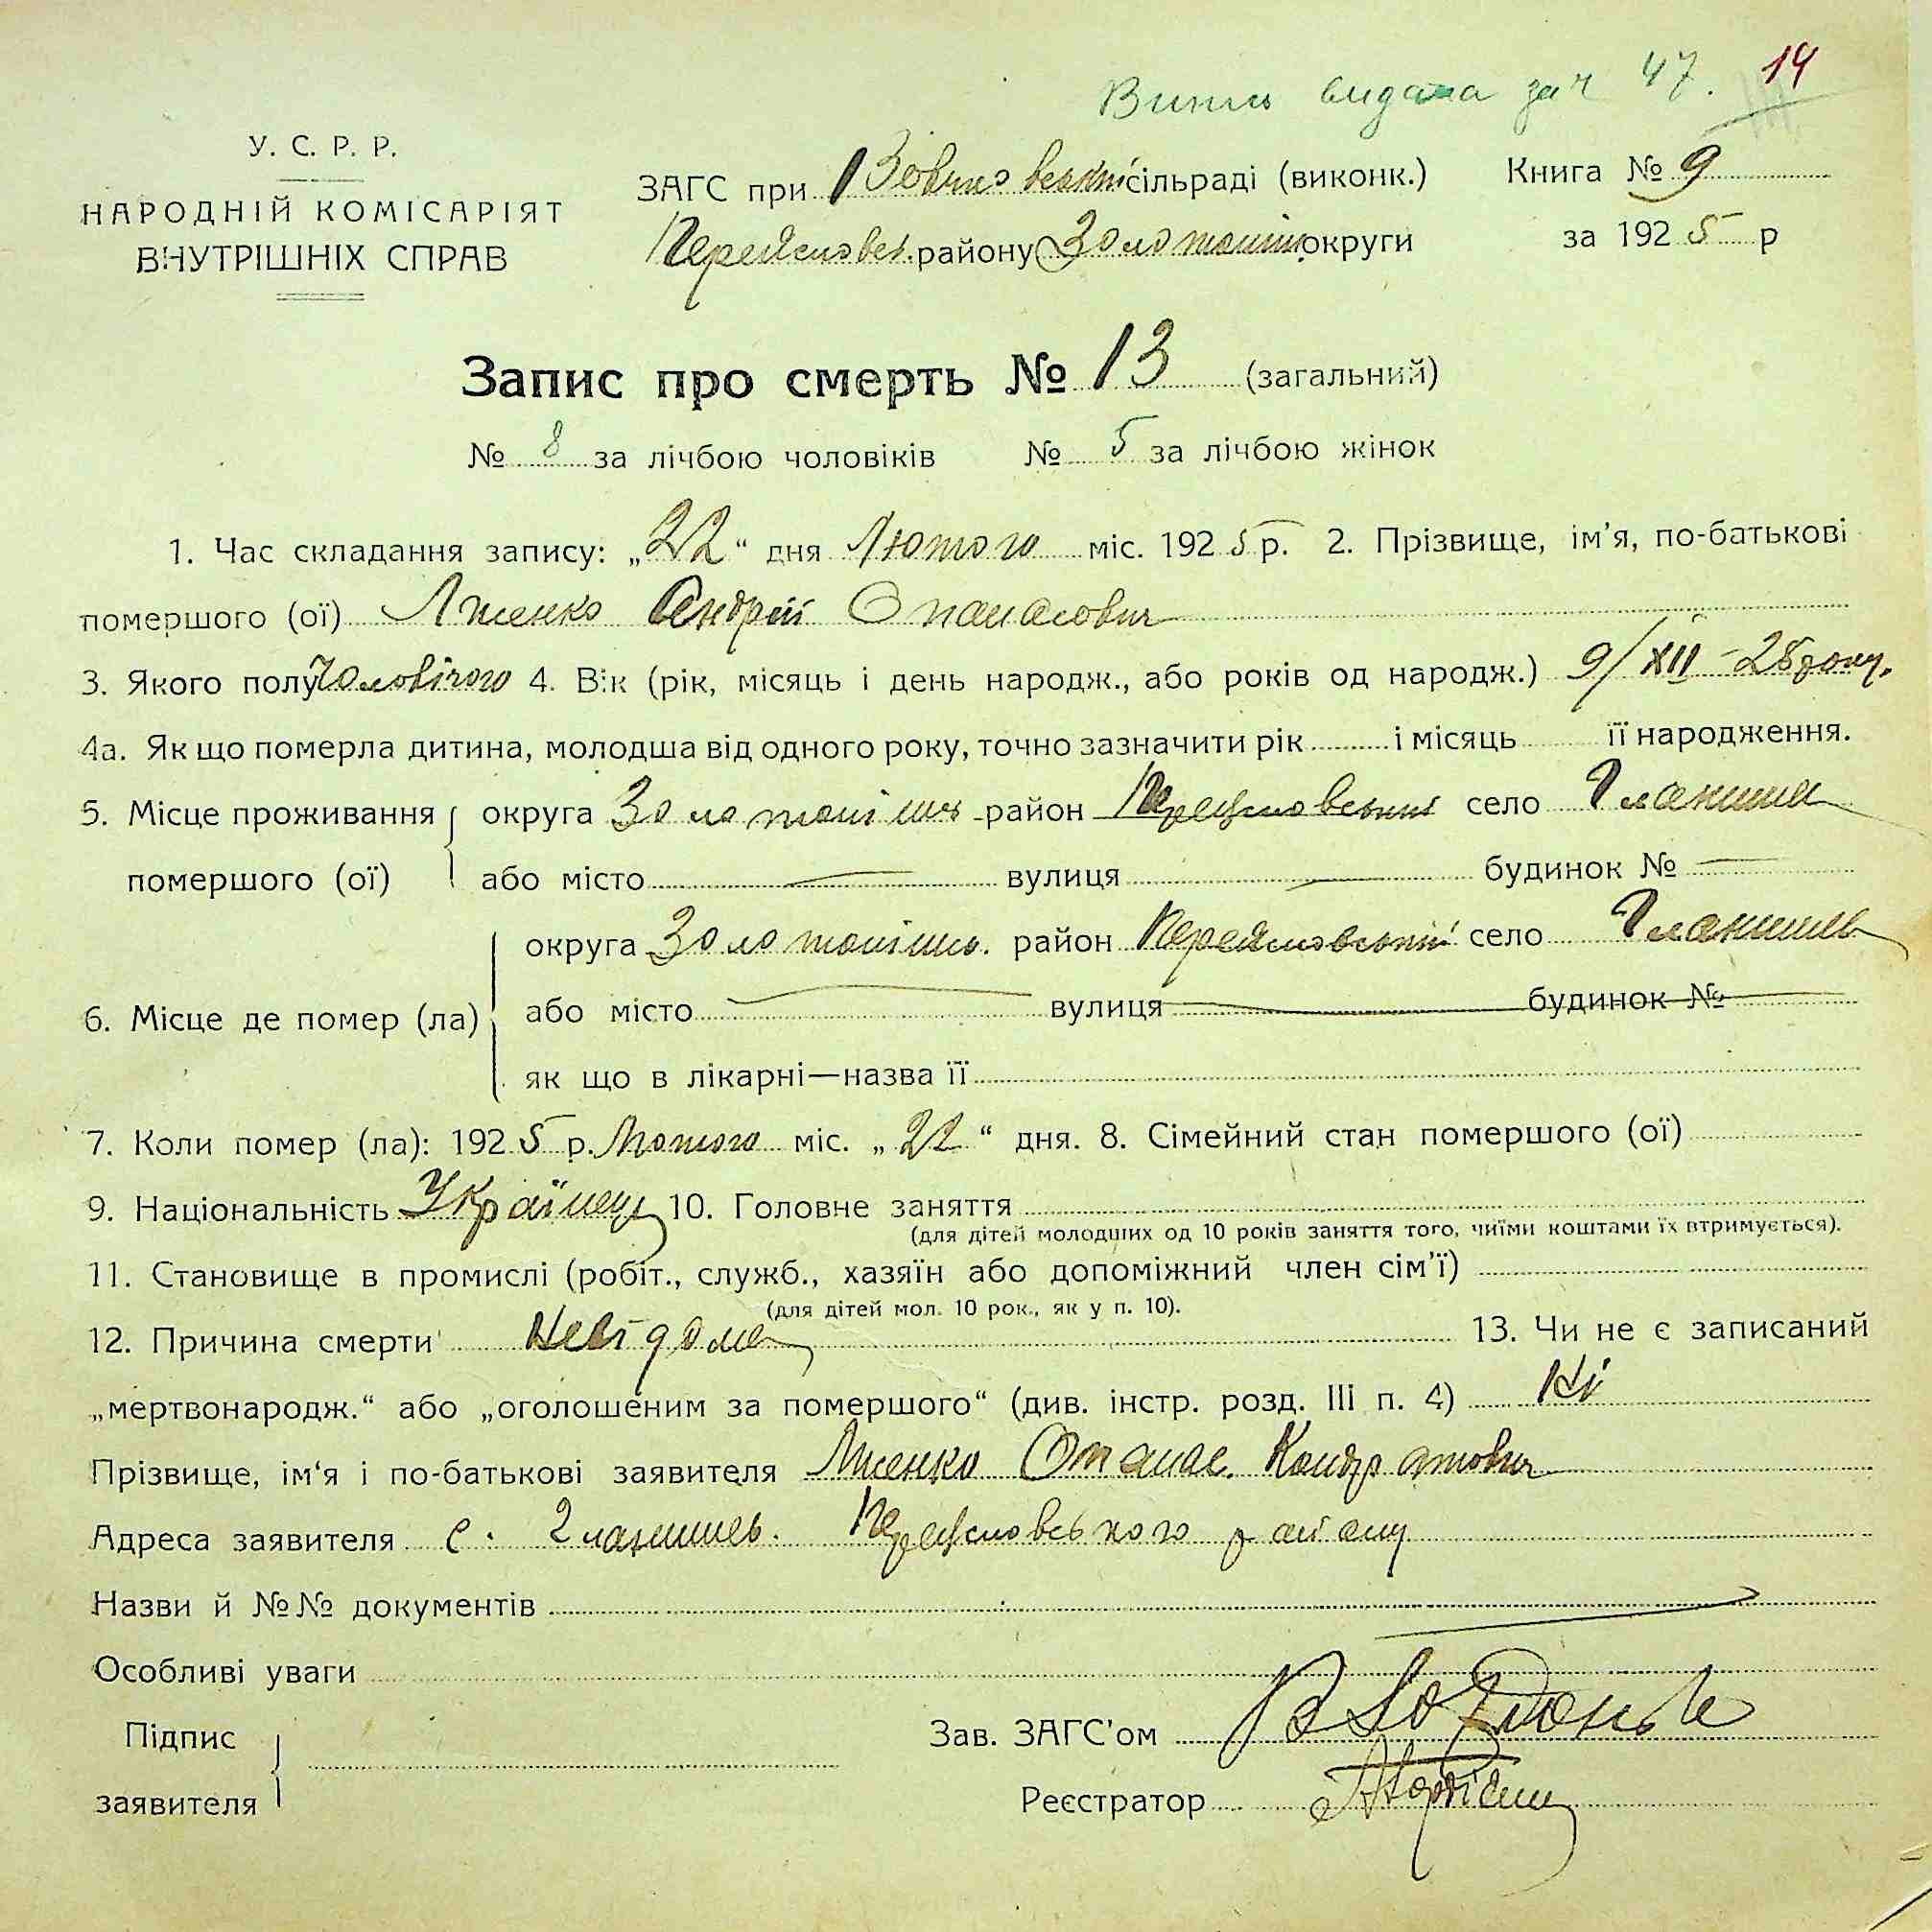 Випись видана за ч 47. 14
У. С. Р. Р.
НАРОДНІЙ КОМІСАРІЯТ
ВНУТРІШНІХ СПРАВ
ЗАГС при сільраді (виконк.)
Переяславськ. району Золотоніськ. округи
Книга № 9
за 1925 р
Запис про смерть № 13 (загальний)
№ 8 за лічбою чоловіків № 5 за лічбою жінок
1. Час складання запису: „22“ дня Лютого міс. 1925 р. 2. Прізвище, ім'я, по-батькові
помершого (ої) Андрій Опанасович
3. Якого полу Чоловічого 4. Вік (рік, місяць і день народж., або років од народж.) 9/XII
4а. Як що померла дитина, молодша від одного року, точно зазначити рік і місяць її народження.
5. Місце проживання помершого (ої) округа район село
або місто — вулиця — будинок № —
6. Місце де помер (ла) округа район село
або місто — вулиця — будинок № —
як що в лікарні—назва її
7. Коли помер (ла): 1925 р. Лютого міс. „22“ дня. 8. Сімейний стан помершого (ої)
9. Національність Українец 10. Головне заняття
(для дітей молодших од 10 років заняття того, чиїми коштами їх втримується).
11. Становище в промислі (робіт., служб., хазяїн або допоміжний член сім'ї)
(для дітей мол. 10 рок., як у п. 10).
12. Причина смерти невідома 13. Чи не є записаний
„мертвонародж.“ або „оголошеним за помершого“ (див. інстр. розд. III п. 4) Ні
Прізвище, ім'я і по-батькові заявителя Кондратович
Адреса заявителя с. району
Назви й №№ документів
Особливі уваги
Підпис заявителя
Зав. ЗАГС'ом
Реєстратор